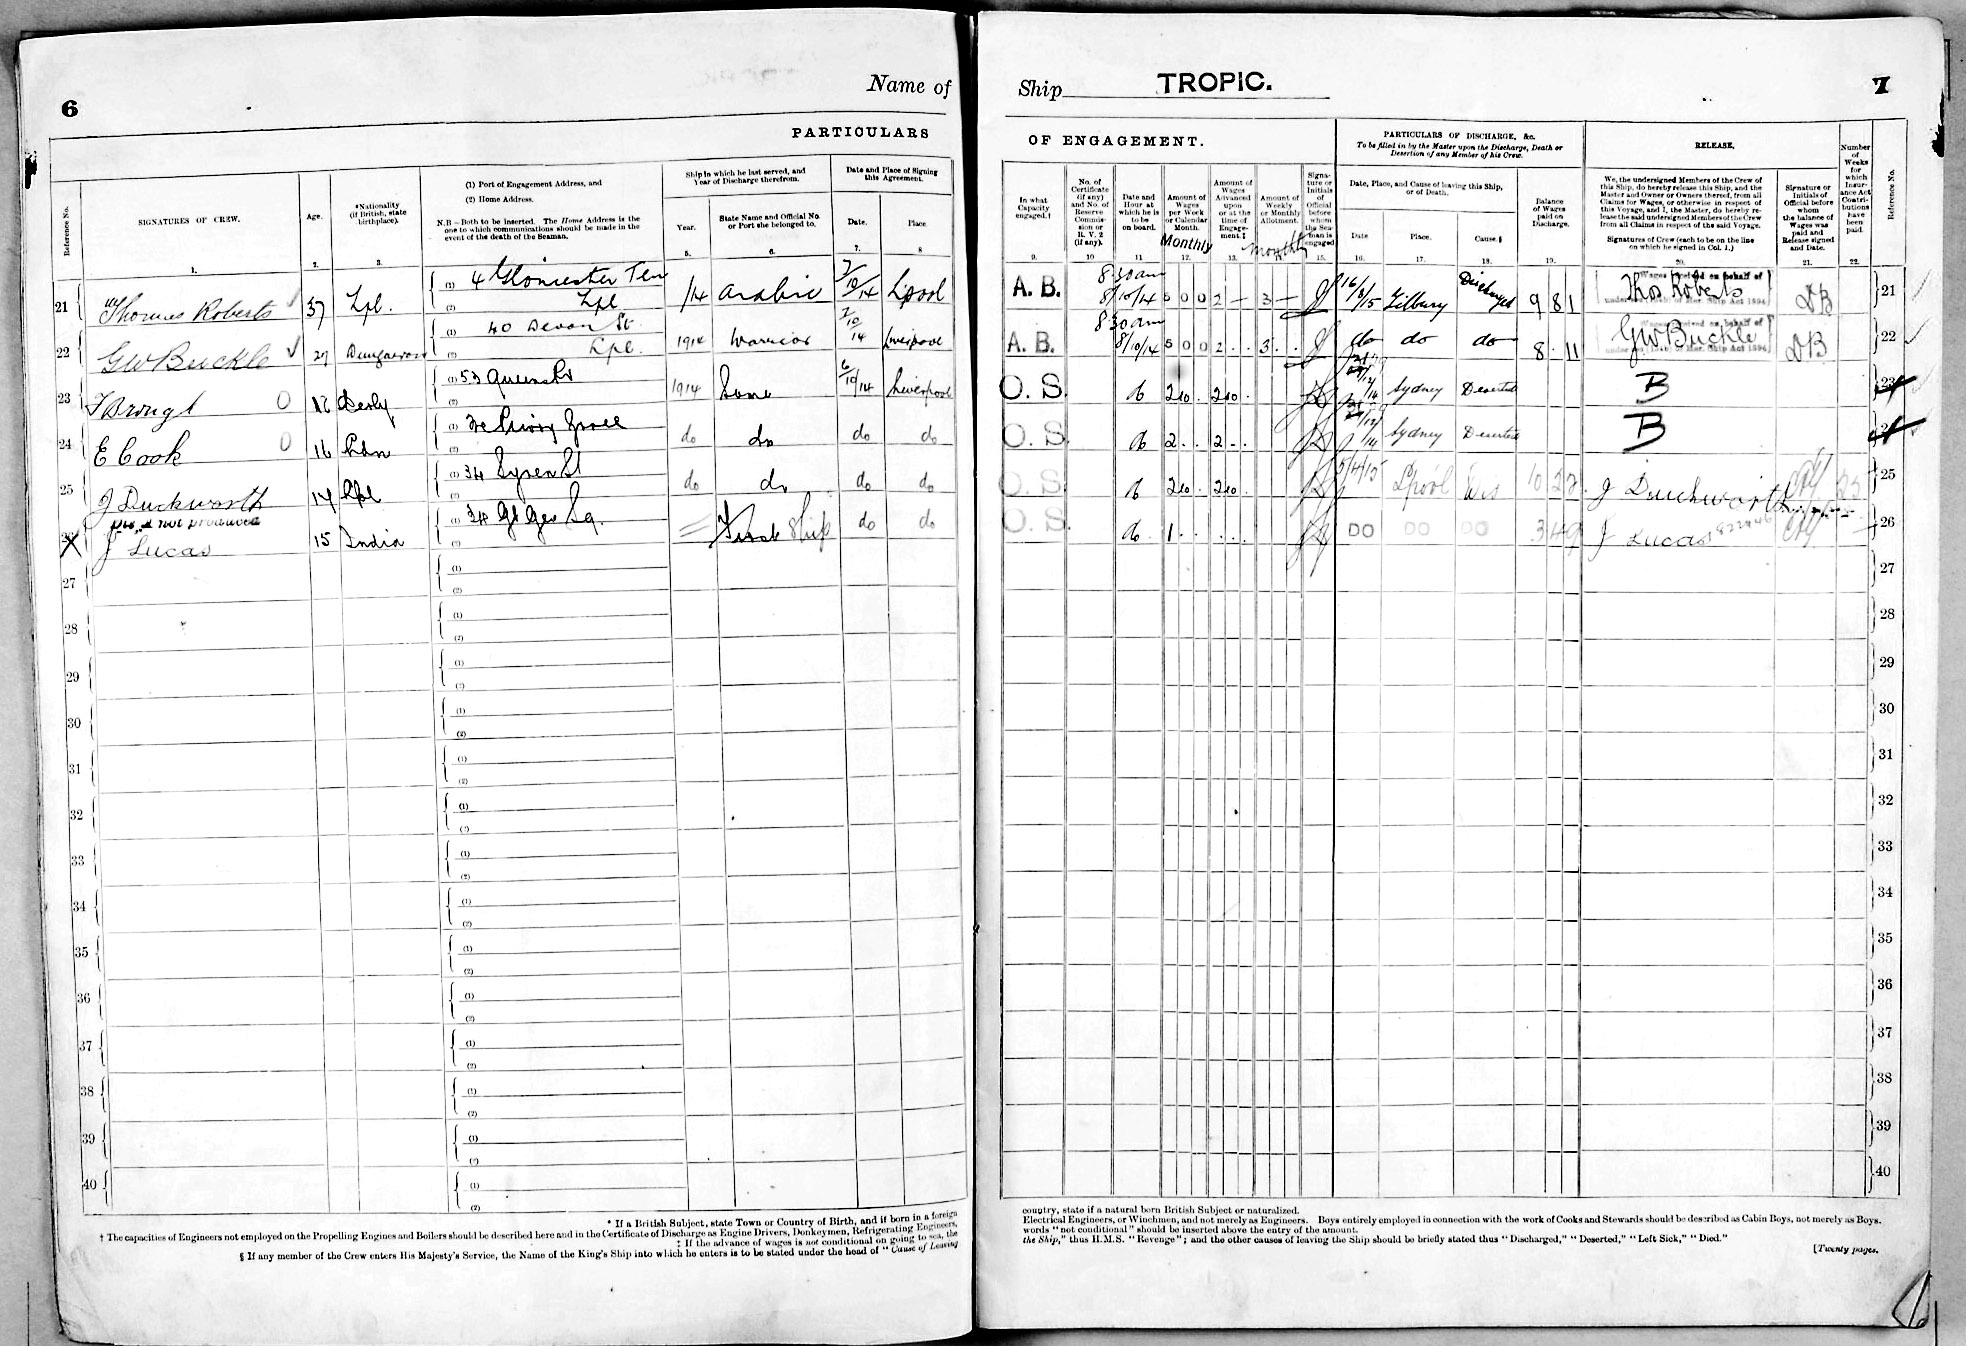 6
Name of
PARTICULARS
Reference No.
SIGNATURES OF CREW.
Age.
*Nationality
(if British, state
birthplace).
(1) Port of Engagement Address, and
(2) Home Address.
N.B—Both to be inserted. The Home Address is the
one to which communications should be made in the
event of the death of the Seaman.
Ship in which he last served, and
Year of Discharge therefrom.
Year.
State Name and Official No.
or Port she belonged to.
Date and Place of Signing
this Agreement.
Date.
Place
1. 2. 3. 5. 6. 7. 8
21 Thomas Roberts 37 Lpl. (1) 4 Gloucester Terr /14 Arabic 7/10/14 L'pool
(2) Lpl
22 GW Buckle 27 Dungarvon (1) 40 Devon St. 1914 Warrior 7/10/14 Liverpool
(2) Lpl.
23 T Brough 0 18 Derby (1) 53 Queens Rd 1914 Same 6/10/14 Liverpool
(2)
24 E Cook 0 16 (1) Priory Grove do do do do
(2)
25 J Duckworth 17 Lpl (1) 34 Syren St do do do do
(2)
Dis A not produced
26 J Lucas 15 India (1) 34 Gt Geo Sq. First Ship do do
(2)
27 (1)
(2)
28 (1)
(2)
29 (1)
(2)
30 (1)
(2)
31 (1)
(2)
32 (1)
(2)
33 (1)
(2)
34 (1)
(2)
35 (1)
(2)
36 (1)
(2)
37 (1)
(2)
38 (1)
(2)
39 (1)
(2)
40 (1)
(2)
* If a British Subject, state Town or Country of Birth, and if born in a foreign
† The capacities of Engineers not employed on the Propelling Engines and Boilers should be described here and in the Certificate of Discharge as Engine Drivers, Donkeymen, Refrigerating Engineers,
‡ If the advance of wages is not conditional on going to sea, the
§ If any member of the Crew enters His Majesty's Service, the Name of the King's Ship into which he enters is to be stated under the head of "Cause of Leaving
Ship TROPIC.
7
OF ENGAGEMENT.
PARTICULARS OF DISCHARGE, &c.
To be filled in by the Master upon the Discharge, Death or
Desertion of any Member of his Crew.
RELEASE.
In what
Capacity
engaged.†
No. of
Certificate
(if any)
and No. of
Reserve
Commis-
sion or
R. V. 2
(if any).
Date and
Hour at
which he is
to be
on board.
Amount of
Wages
per Week
or Calendar
Month.
Monthly
Amount of
Wages
Advanced
upon
or at the
time of
Engage-
ment.‡
Amount of
Weekly
or Monthly
Allotment.
Monthly
Signa-
ture or
Initials
of
Official
before
whom
the Sea-
man is
engaged
Date, Place, and Cause of leaving this Ship,
or of Death.
Date
Place.
Cause.§
Balance
of Wages
paid on
Discharge.
We, the undersigned Members of the Crew of
this Ship, do hereby release this Ship, and the
Master and Owner or Owners thereof, from all
Claims for Wages, or otherwise in respect of
this Voyage, and I, the Master, do hereby re-
lease the said undersigned Members of the Crew
from all Claims in respect of the said Voyage.
Signatures of Crew (each to be on the line
on which he signed in Col. 1.)
Signature or
Initials of
Official before
whom
the balance of
Wages was
paid and
Release signed
and Date.
Number
of
Weeks
for
which
Insur-
ance Act
Contri-
butions
have
been
paid.
Reference No.
9. 10 11 12. 13. 15. 16. 17. 18. 19. 20. 21. 22.
A. B. 8.30 am 8/10/14 5 0 0 2 — 3 — 16/3/15 Tilbury Discharged 9 8 1 Thos Roberts DB 21
A. B. 8.30 am 8/10/14 5 0 0 2 . . 3 . . do do do 8 . 11 GW Buckle DB 22
O. S. 2 10 . 2 10 . Sydney Deserted B 23
O. S. 2 . . 2 . . Sydney Deserted B 24
O. S. 2 10 . 2 10 . L'pool Dis J Duckworth 25
O. S. 1 . . . . . DO DO DO J Lucas 26
27
28
29
30
31
32
33
34
35
36
37
38
39
40
country, state if a natural born British Subject or naturalized.
Electrical Engineers, or Winchmen, and not merely as Engineers. Boys entirely employed in connection with the work of Cooks and Stewards should be described as Cabin Boys, not merely as Boys.
words "not conditional" should be inserted above the entry of the amount.
the Ship," thus H.M.S. "Revenge"; and the other causes of leaving the Ship should be briefly stated thus "Discharged," "Deserted," "Left Sick," "Died."
[Twenty pages.